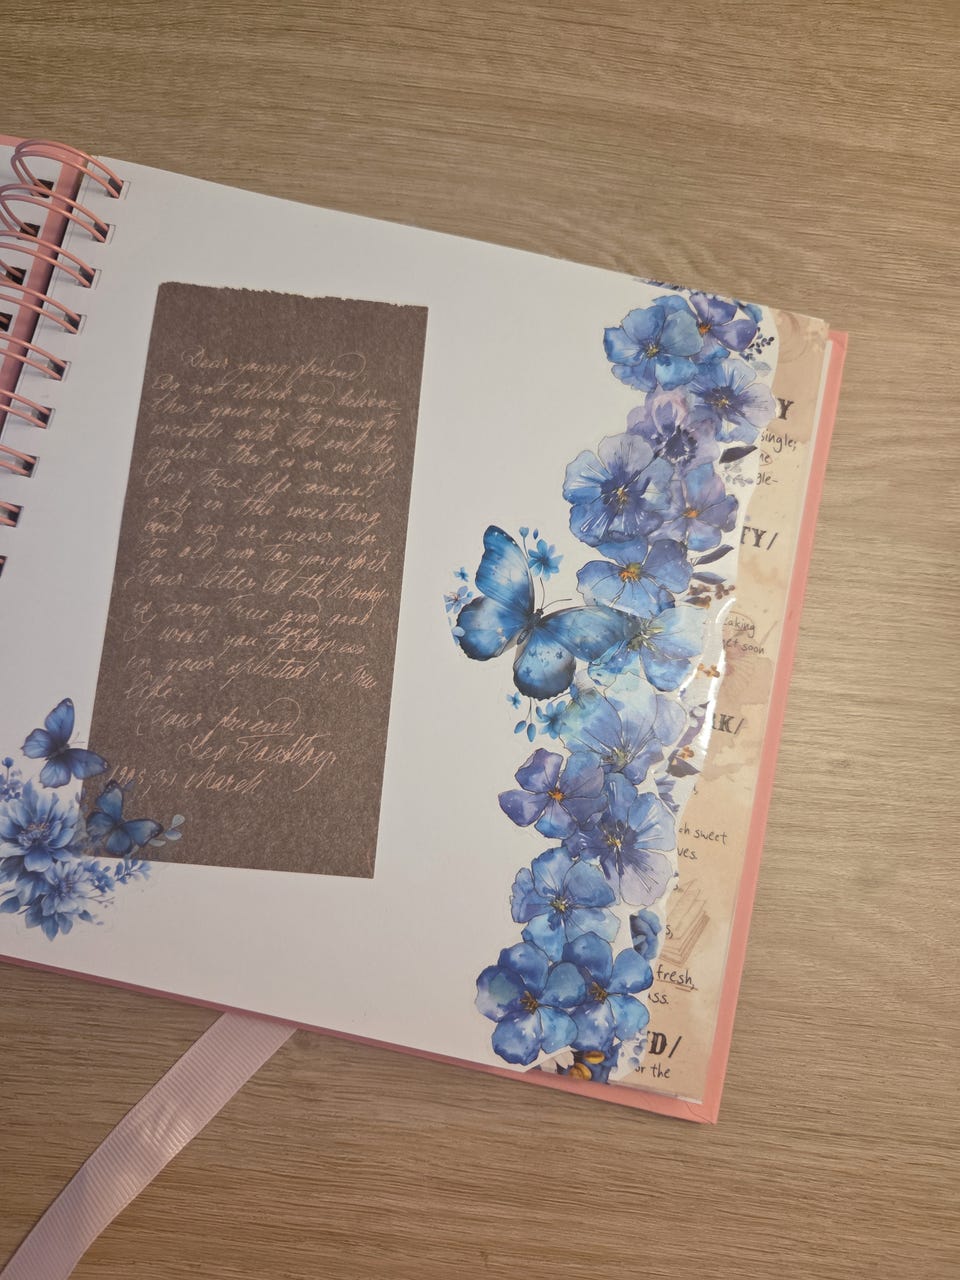 Dear young friend
Do not think and believe
that your are to young to
wrestle with the only the
evolve that is in us all
Our true life consist
only in the wrestling
and we are never nor
too old nor too young
Your letter to the
is very true and good
I wish you
progress
in your spiritual true
life.
Your friend
Leo Tolstoy
1905, 31 March
Y
single;
ne
gle-
TY/
eaking
get soon
RK/
ch sweet
ves.
s,
fresh,
ass.
D/
or the